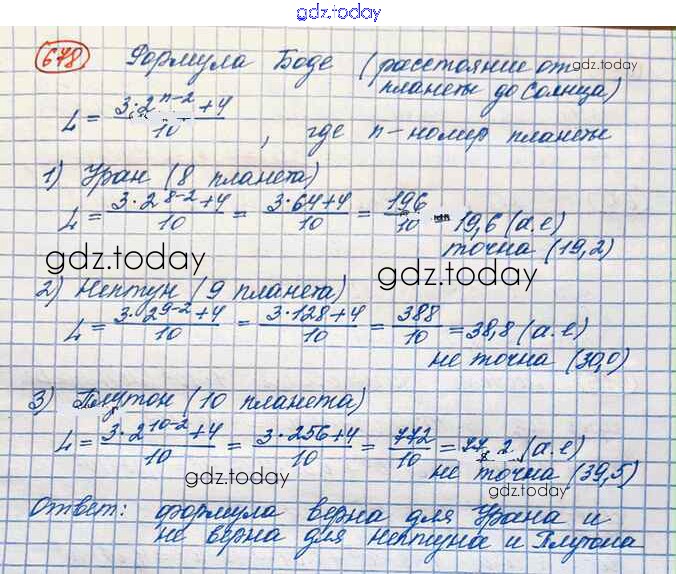 gdz.today
678 Формула Боде (расстояние от
gdz.today
планеты до Солнца)
L = (3·2^(n-2) + 4)/10, где n - номер планеты
1) Уран (8 планета)
L = (3·2^(8-2) + 4)/10 = (3·64+4)/10 = 196/10 = 19,6 (а.е)
точна (19,2)
gdz.today
gdz.today
2) Нептун (9 планета)
L = (3·2^(9-2) + 4)/10 = (3·128+4)/10 = 388/10 = 38,8 (а.е)
не точна (30,0)
3) Плутон (10 планета)
L = (3·2^(10-2) + 4)/10 = (3·256+4)/10 = 772/10 = 77,2 (а.е)
не точна (39,5)
gdz.today
gdz.today
Ответ: формула верна для Урана и
не верна для Нептуна и Плутона